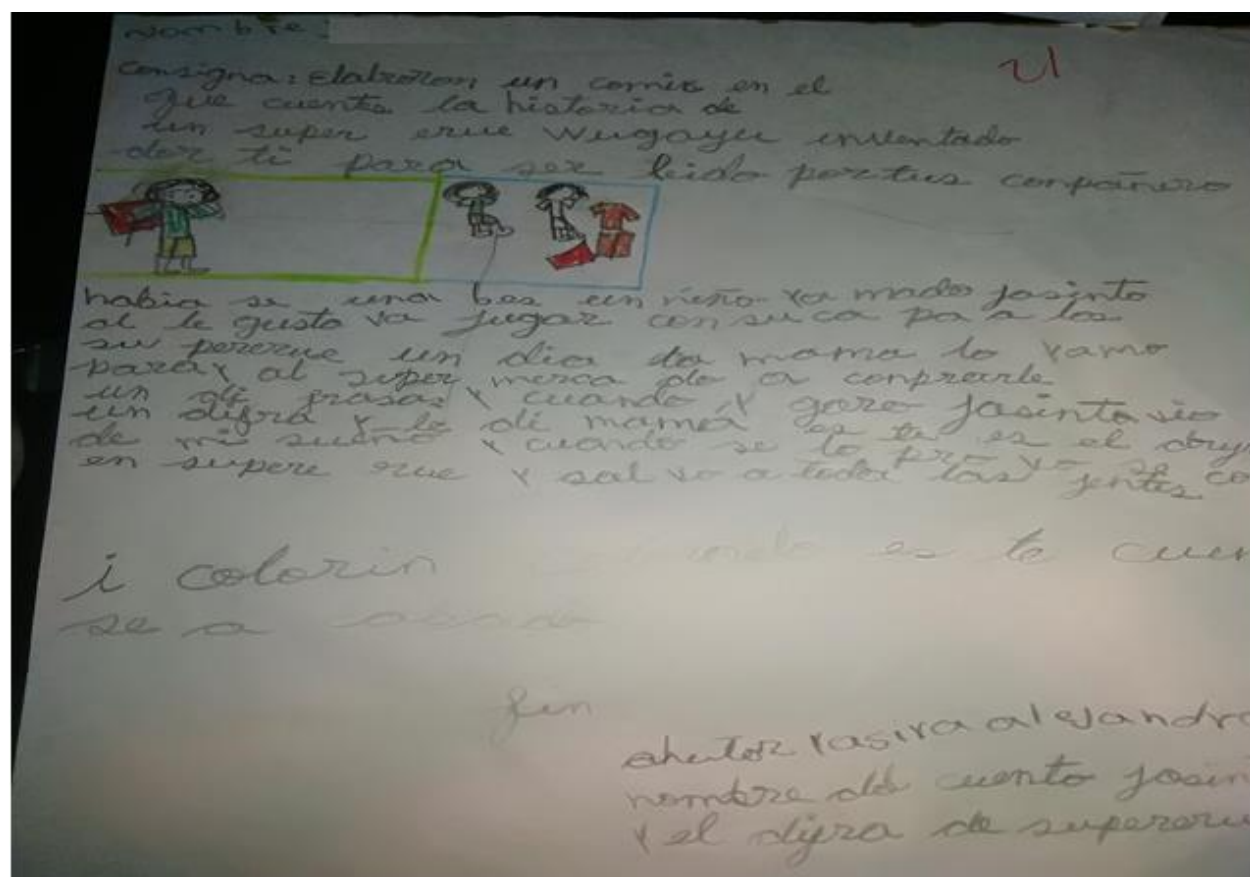 Nombre:
21
Consigna: Elaboran un comic en el
que cuenta la historia de
un super erue Wugayu inventado
der ti para ser leido por tus conpañero
habia se una bes un niño ya mado Jasinto
al le gusto va jugar con su ca pa a los
su pererue un dia la mama lo yamo
para y al super merca do a conprarle
un di frasa y cuando y garo Jasinto vio
un difra y le di mamá es te es el
de mi sueño y cuando se lo pro vo se co
en supere erue y sal vo a toda las jentes
i colorin es te cuen
se a
fin
ahutor yasira alejandro
nombre del cuento Josin
y el difra de supererue